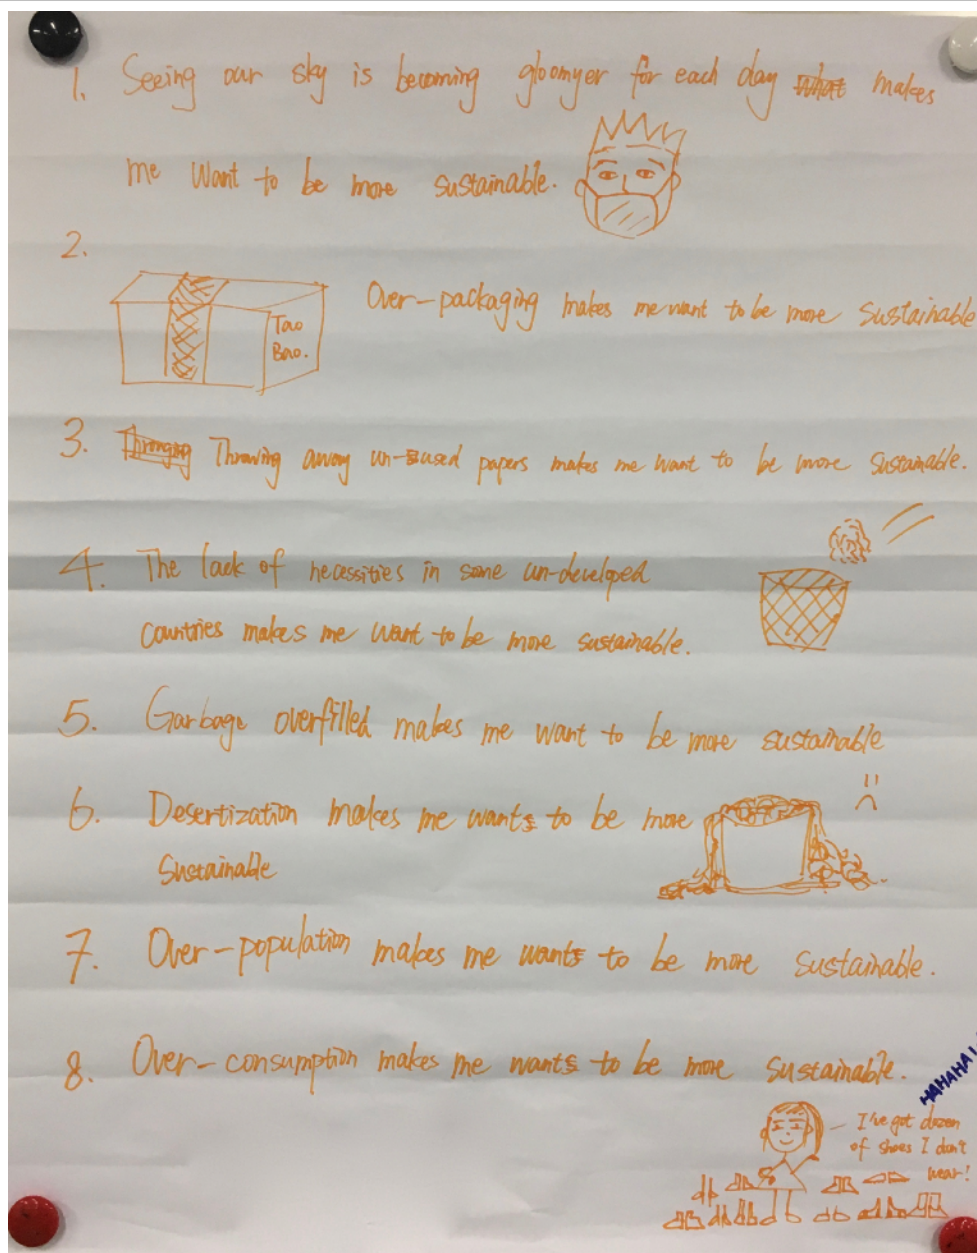 1. Seeing our sky is becoming gloomyer for each day what makes
me want to be more sustainable.
2.
Tao
Bao.
Over-packaging makes me want to be more sustainable
3. Thronging Throwing away un-used papers makes me want to be more sustainable.
4. The lack of necessities in some un-developed
countries makes me want to be more sustainable.
5. Garbage overfilled makes me want to be more sustainable
6. Desertization makes me wants to be more
sustainable
7. Over-population makes me wants to be more sustainable.
8. Over-consumption makes me wants to be more sustainable.
HAHAHA!
I've got dozen
of shoes I don't
wear!